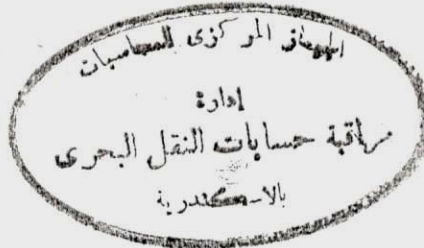 الجهاز المركزى للمحاسبات
إدارة
مراقبة حسابات النقل البحرى
بالاسكندرية